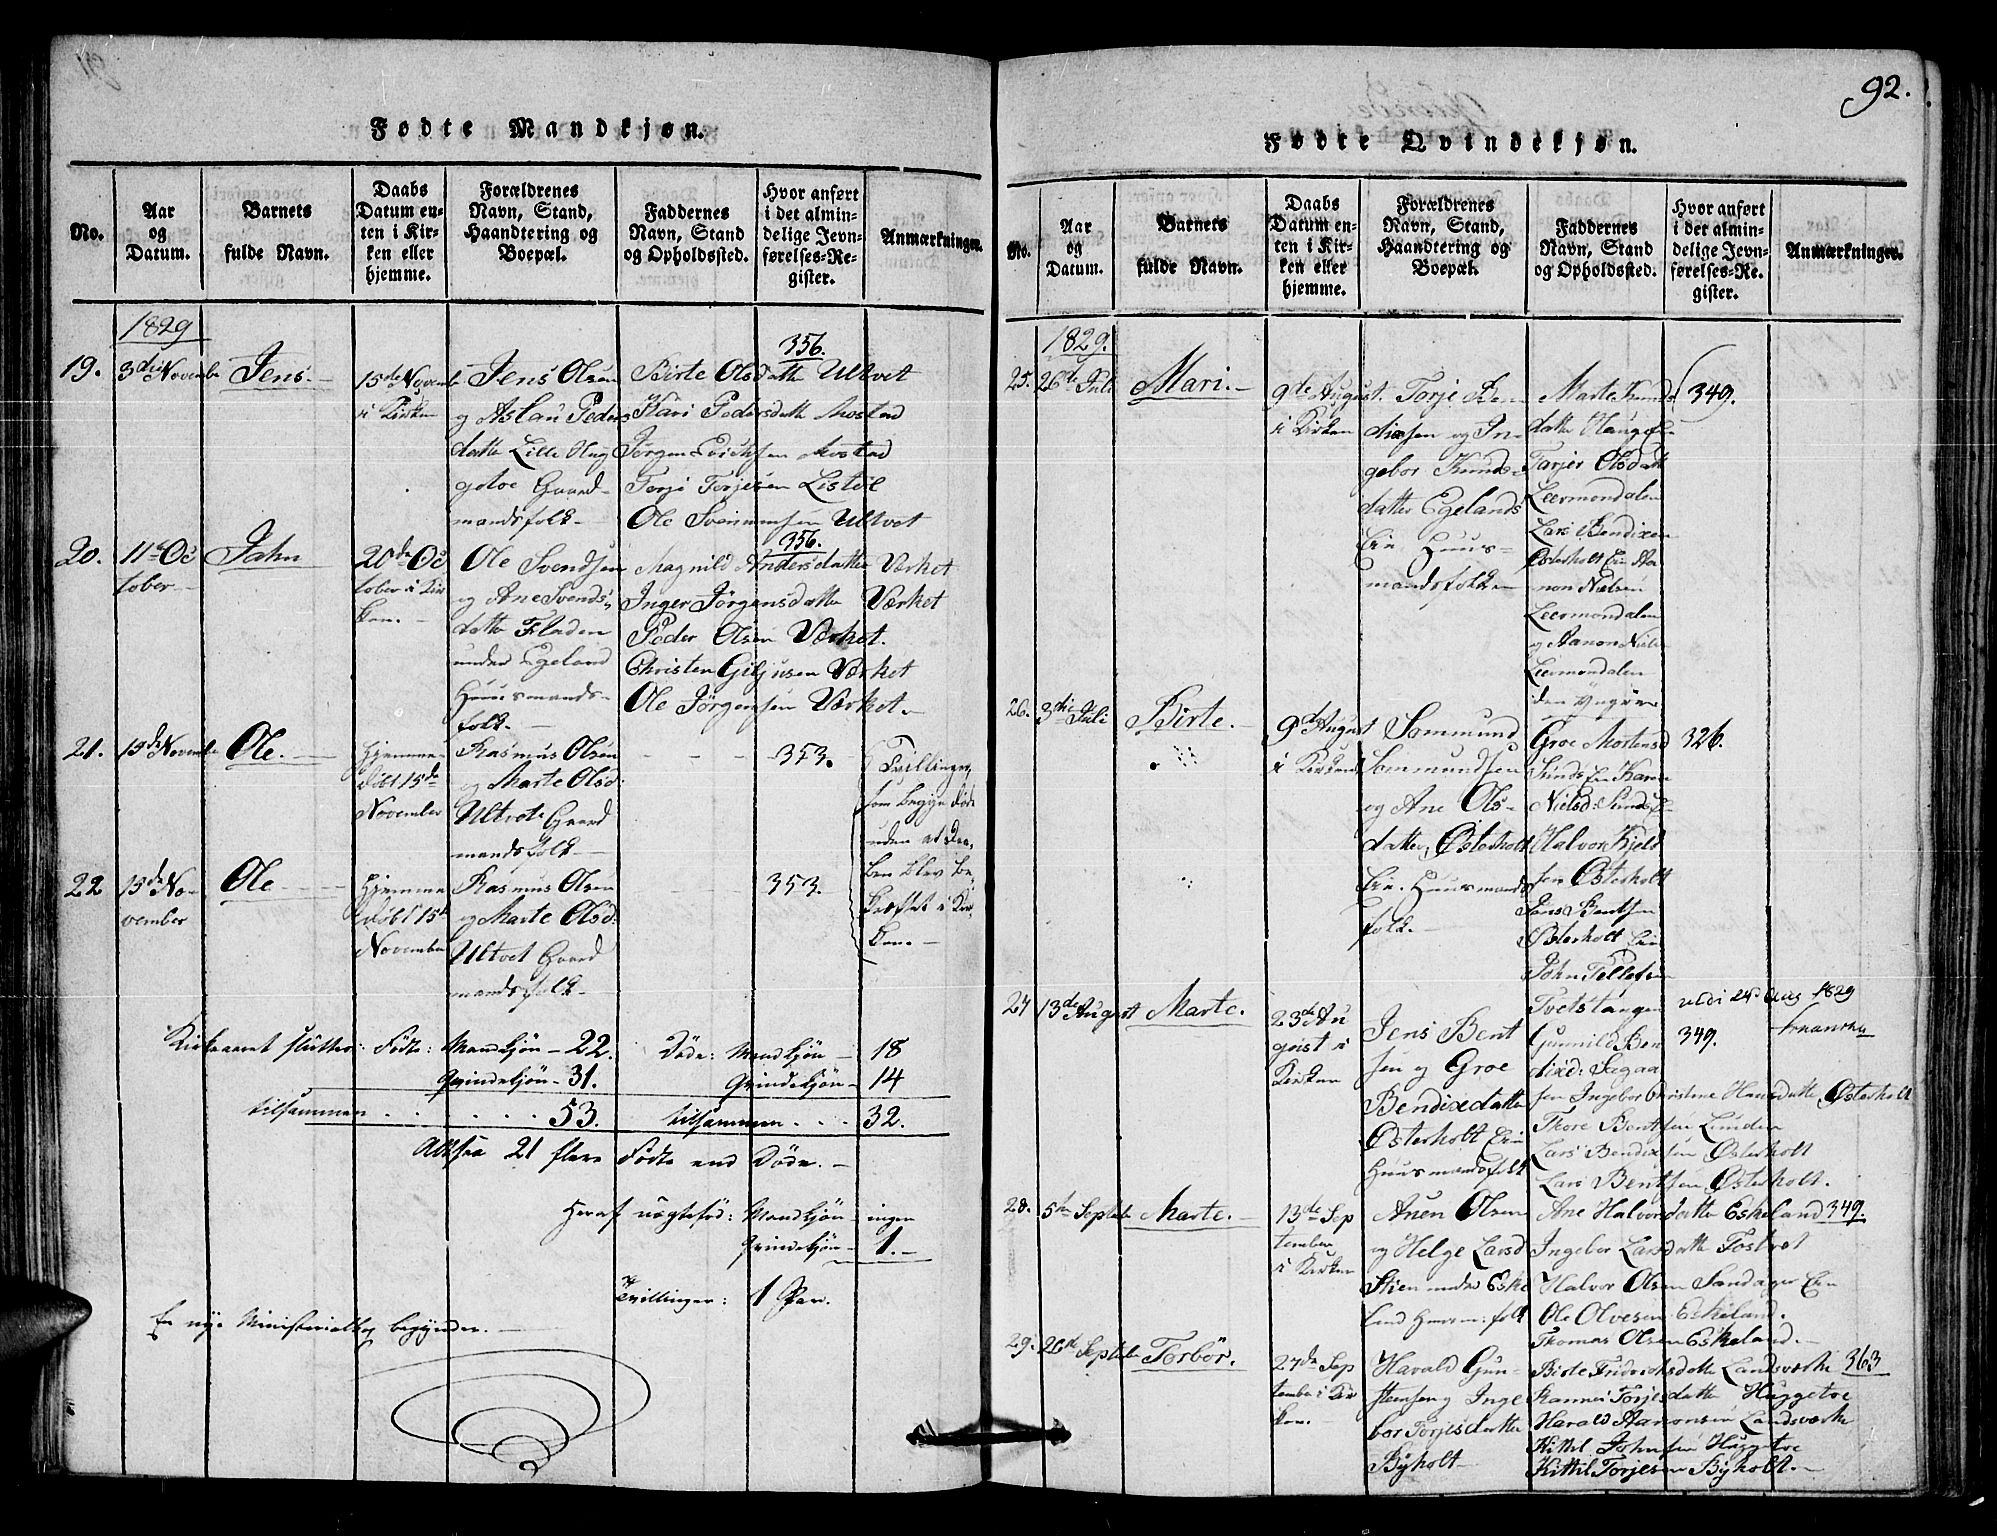 92.
Fødte Mandkjøn.
No.
Aar
og
Datum.
Barnets
fulde Navn.
Daabs
Datum en-
ten i Kir-
ken eller
hjemme.
Forældrenes
Navn, Stand,
Haandtering og
Boepæl.
Faddernes
Navn, Stand
og Opholdssted.
Hvor anført
i det almin-
delige Jevn-
førelses-Re-
gister.
Anmærkninger.
1829
19.
3die Novembe
Jens.
15de Novembe
i Kirken
Jens Olsen
og Aslau Peders
datte Lille Hug
getoe Gaard-
mandsfolk
Birte Olsdatte Ultvet
Kari Pedersdatte Mostad
Jørgen Erichsen Mostad
Torje Torjesen Listøl
Ole Svenumsen Ultvet
356.
20.
11te Oc
tober
Jahn
20de Oc
tober i Kir
ken.
Ole Svendsen
og Ane Svends
datte Fladen
under Egeland
Huusmands-
folk.
Magnild Andersdatte Værket
Inger Jørgensdatte Værket
Peder Olsen Værket.
Christen Giljusen Værket
Ole Jørgensen Værket.
356.
21.
15de Novembe
Ole.
Hjemme
døbt 15de
November
Rasmus Olsen
og Marte Olsd:
Ultvet Gaard
mandsfolk
353.
Tvillinger,
som begge døde
uden at Daa-
ben blev be-
kræftet i Kir-
ken.
22
15de No-
vember
Ole
Hjemme
døbt 15de
November
Rasmus Olsen
og Marte Olsd:
Ultvet Gaard
mandsfolk
353.
Kirkeaaret slutter: Fødte: Mandkjøn - 22. Døde: Mandkjøn - 18
Qvindekjøn - 31. Qvindekjøn - 14
tilsammen 53. tilsammen 32.
Altsaa 21 flere Fødte end Døde.
Heraf uægtefød: Mandkjøn - ingen
Qvindekjøn - 1.
Tvillinger: 1 Par.
En nye Ministerialbog begynder.
Fødte Qvindekjøn.
No.
Aar
og
Datum.
Barnets
fulde Navn.
Daabs
Datum en-
ten i Kir-
ken eller
hjemme.
Forældrenes
Navn, Stand,
Haandtering og
Boepæl.
Faddernes
Navn, Stand
og Opholdssted.
Hvor anført
i det almin-
delige Jevn-
førelses-Re-
gister.
Anmærkninger.
1829.
25.
26de Juli
Mari.
9de August
i Kirken
Torje Ben
dixsen og In-
gebor Knuds-
datter Egelands
Eie. Huus-
mandsfolk
Marte Knuds
datte
Tarjer Olsdatt
Leermondalen
Lars Bendixen
Østerholt Eie Aa
non Nielsen
Leermondalen
og Aanon Niels
Leermondalen
den yngere
349.
26.
3die Juli
Birte.
9de August
i Kirken
Sommund
Sommundsen
og Ane Ols-
datter, Østerholt
Eie. Huusmands
folk.
Groe Mortensd
Sunds Eie Karen
Nielsd: Sunds E
Halvor Kjeld
sen Østerholt
Jens Bentsen
Østerholt Eie
John Tellefsen
Tvetstangen
326.
27
13de August
Marte.
23de Au
gust i
Kirken
Jens Bent
sen og Groe
Bendixdatter
Østerholt Eie
Huusmandsfolk
Gunnild Ben
dixd:
Ingebor Christine Hansdatte Østerholt
Thore Bentsen Linden
Lars Bendixsen Østerholt
Lars Bentsen Østerholt.
349.
24de Aug 1829
28.
5te Septembe
Marte.
13de Sep
tember
i Kirken
Anen Olsen
og Helge Larsd
Stien under Eske
land Huusm: folk
Ane Halvorsdatte Eskeland
Ingebor Larsdatte Fostvet
Halvor Olsen Sandager Eie
Ole Olvesen Eskeland.
Thomas Olsen Eskeland.
349.
29.
26de Septembe
Torbør.
27de Sep
tembe i Kir
ken.
Havald Gun-
stensen og Inge
bor Torjesdatter
Byholt
Birte Fridrichsdatte Landsværke
Torjesdatte Huggetoe
Harald Aanonsen Landsværke
Kittil Johnsen Huggetoe
Kittil Torjesen Byholt.
363